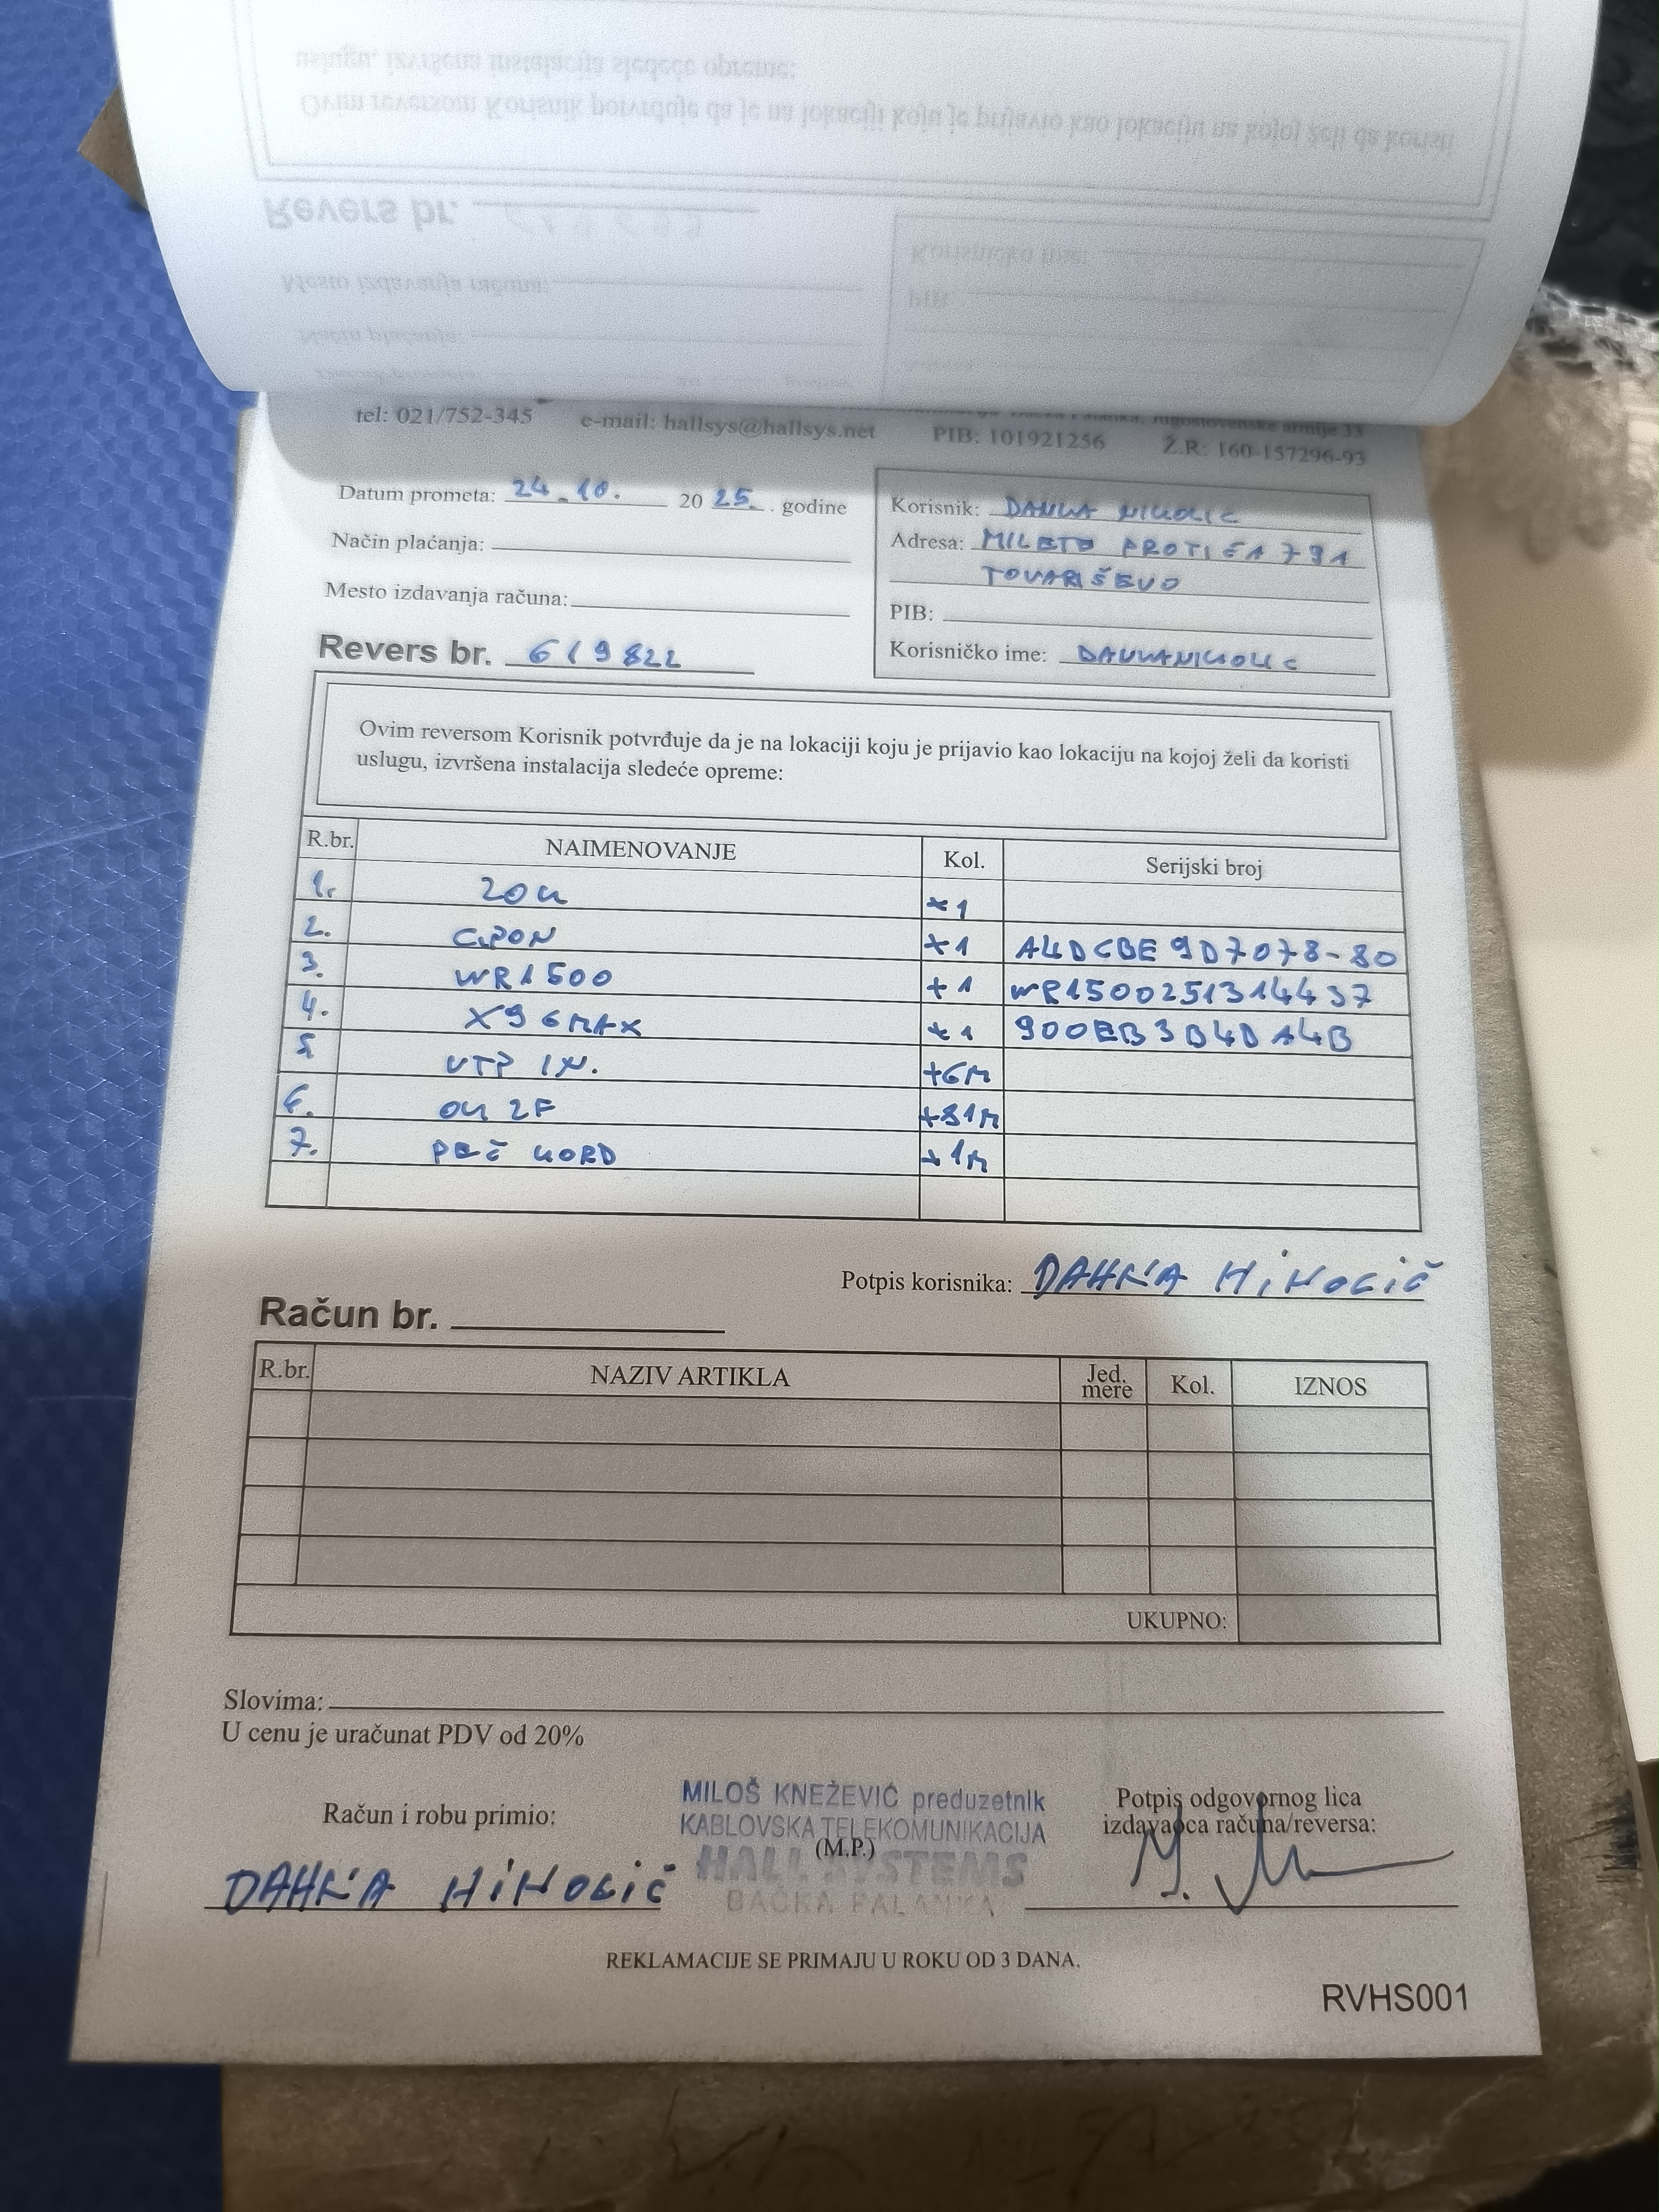 tel: 021/752-345 e-mail: hallsys@hallsys.net PIB: 101921256 Ž.R: 160-157296-93
Datum prometa: 24.10. 2025. godine
Način plaćanja:
Mesto izdavanja računa:
Revers br. 619822
Korisnik: DANKA NIKOLIC
Adresa: MILETE PROTIĆA 791
TOVARIŠEVO
PIB:
Korisničko ime: DANKANIKOLIC
Ovim reversom Korisnik potvrđuje da je na lokaciji koju je prijavio kao lokaciju na kojoj želi da koristi
uslugu, izvršena instalacija sledeće opreme:
R.br. NAIMENOVANJE Kol. Serijski broj
1. ZOK +1
2. GPON +1 A4DCBE9D7078-80
3. WR1500 +1 WR1500251314437
4. X96MAX +1 900EB3B4DA4B
5 UTP IN. +6M
6. OK 2F +81M
7. PEČ KORD +1M
Potpis korisnika: DAHKA HİKOLİČ
Račun br.
R.br. NAZIV ARTIKLA Jed. mere Kol. IZNOS
UKUPNO:
Slovima:
U cenu je uračunat PDV od 20%
Račun i robu primio:
DAHKA HİKOLİČ
MILOŠ KNEŽEVIĆ preduzetnik
KABLOVSKA TELEKOMUNIKACIJA
(M.P.)
HALL SYSTEMS
BAČKA PALANKA
Potpis odgovornog lica
izdavaoca računa/reversa:
REKLAMACIJE SE PRIMAJU U ROKU OD 3 DANA.
RVHS001